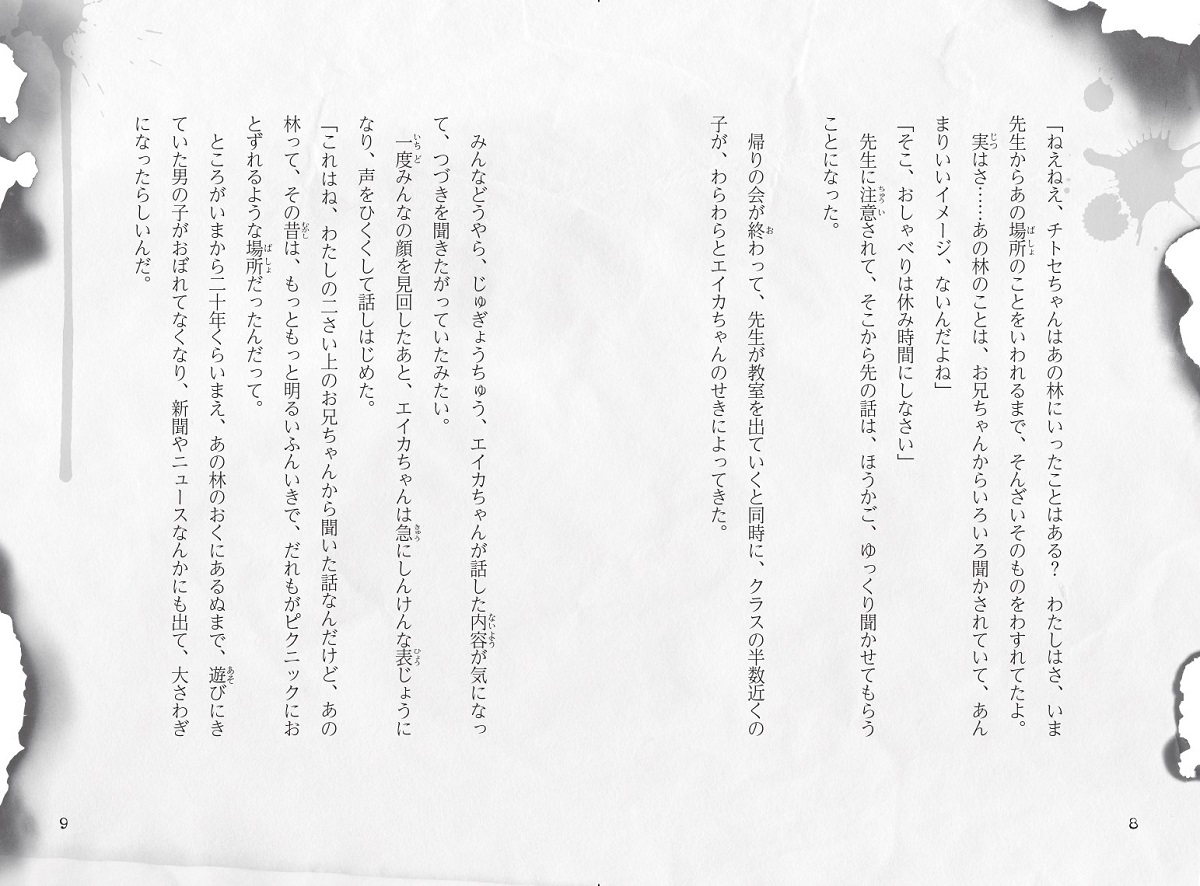 「ねえねえ、チトセちゃんはあの林にいったことはある？　わたしはさ、いま
先生からあの場所のことをいわれるまで、そんざいそのものをわすれてたよ。
実はさ……あの林のことは、お兄ちゃんからいろいろ聞かされていて、あん
まりいいイメージ、ないんだよね」
「そこ、おしゃべりは休み時間にしなさい」
　先生に注意されて、そこから先の話は、ほうかご、ゆっくり聞かせてもらう
ことになった。
　帰りの会が終わって、先生が教室を出ていくと同時に、クラスの半数近くの
子が、わらわらとエイカちゃんのせきによってきた。
8
　みんなどうやら、じゅぎょうちゅう、エイカちゃんが話した内容が気になっ
て、つづきを聞きたがっていたみたい。
　一度みんなの顔を見回したあと、エイカちゃんは急にしんけんな表じょうに
なり、声をひくくして話しはじめた。
「これはね、わたしの二さい上のお兄ちゃんから聞いた話なんだけど、あの
林って、その昔は、もっともっと明るいふんいきで、だれもがピクニックにお
とずれるような場所だったんだって。
　ところがいまから二十年くらいまえ、あの林のおくにあるぬまで、遊びにき
ていた男の子がおぼれてなくなり、新聞やニュースなんかにも出て、大さわぎ
になったらしいんだ。
9